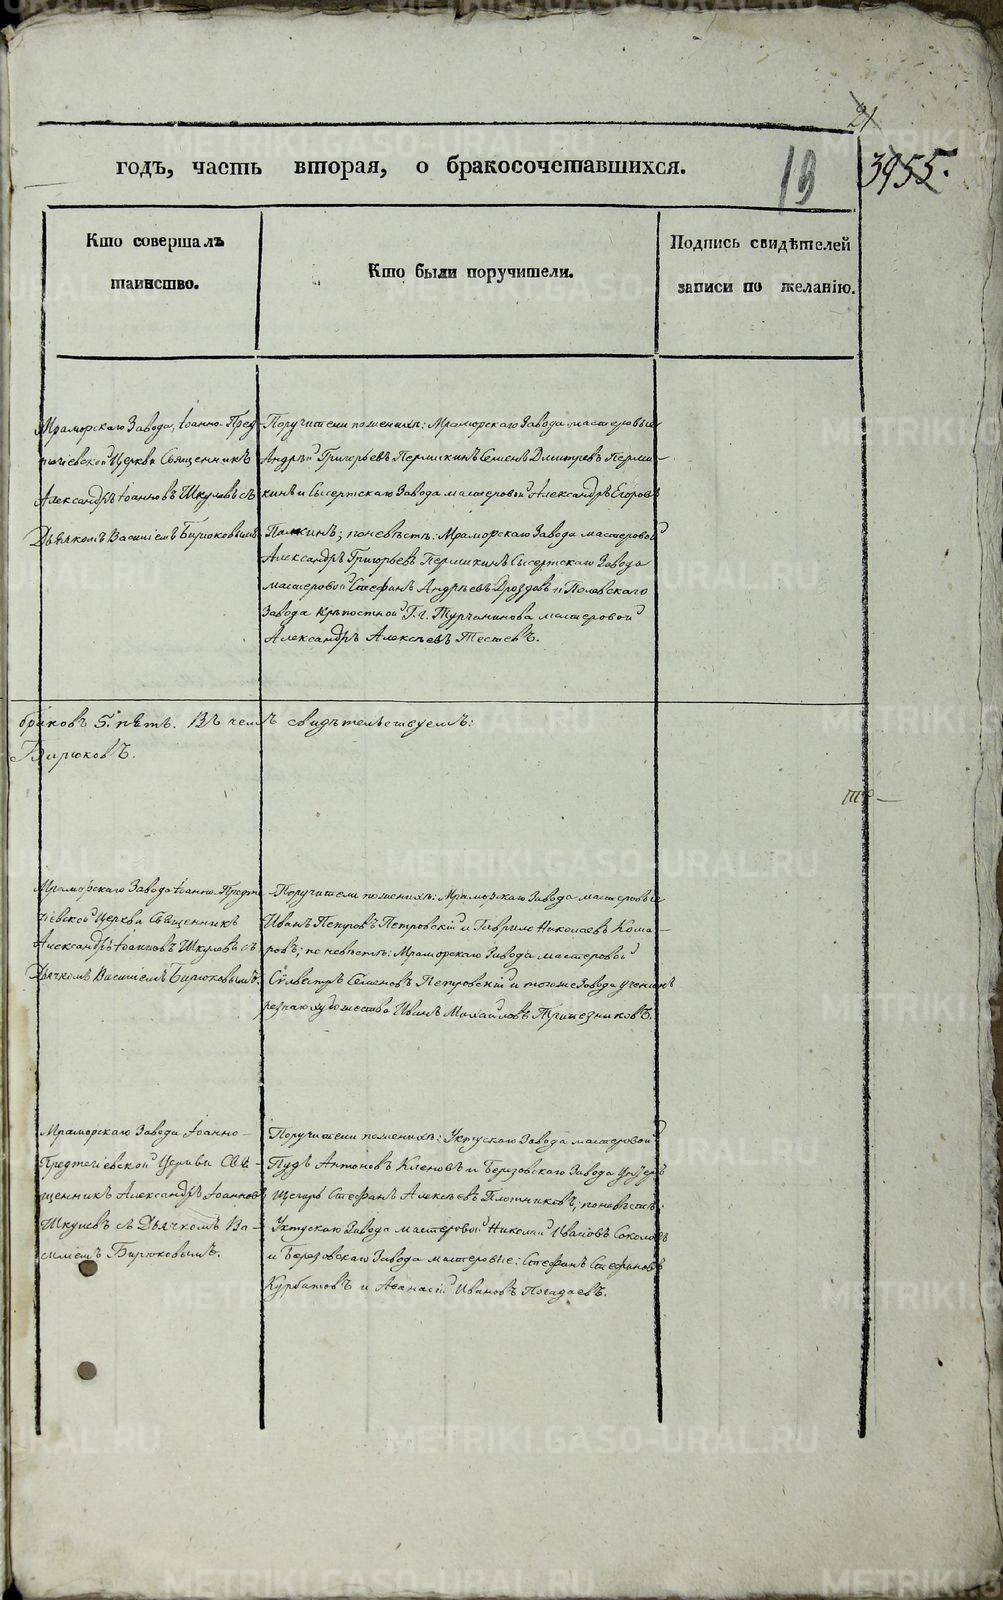 21
годъ, часть вторая, о бракосочетавшихся.
19
3955.
Кто совершалъ
таинство.
Кто были поручители.
Подпись свидѣтелей
записи по желанію.
Мраморскаго Завода, Іоанно-Пред-
течіевской Церкви Священникъ
Александръ Іоанновъ Шкулевъ съ
Дьячкомъ Василіемъ Бирюковымъ
Поручители по женихѣ: Мраморскаго Завода мастеровые
Андрѣй Григорьевъ Пермикинъ Семенъ Дмитревъ Перми-
кинъ и Сысертскаго Завода мастеровой Александръ Егоровъ
Палкинъ; по невѣстѣ: Мраморскаго Завода мастеровой
Александръ Григорьевъ Пермикинъ Сысертскаго Завода
мастеровой Стефанъ Андрѣевъ Дроздовъ и Полевскаго
Завода крѣпостной Г. г. Турчанинова мастеровой
Александръ Алексѣевъ Тестевъ.
браковъ 5. пѣть. Въ чемъ свидѣтельствуемъ:
Бирюковъ.
Мраморскаго Завода Іоанно-Предте-
чевской Церкви Священникъ
Александръ Іоанновъ Шкулевъ съ
Дьячкомъ Василіемъ Бирюковымъ.
Поручители по женихѣ: Мраморскаго Завода мастеровые
Иванъ Петровъ Петровскій и Гаврило Николаевъ Кома-
ровъ; по невѣстѣ: Мраморскаго Завода мастеровой
Сильвестръ Семеновъ Петровскій и тогоже Завода ученикъ
рѣзнаго художества Иванъ Михайловъ Трапезниковъ.
Мраморскаго Завода Іоанно-
Предтечіевской Церкви Свя-
щенникъ Александръ Іоанновъ
Шкулевъ съ Дьячкомъ Ва-
силіемъ Бирюковымъ.
Поручители по женихѣ: Уктускаго Завода мастеровой
Пудъ Антоновъ Кленовъ и Березовскаго Завода Унтеръ
Шегарь Стефанъ Алексѣевъ Плотниковъ; по невѣстѣ:
Уктускаго Завода мастеровой Николай Ивановъ Соколовъ
и Березовскаго Завода мастеровые: Стефанъ Стефановъ
Курбатовъ и Аѳанасій Ивановъ Погадаевъ.
METRIKI.GASO-URAL.RU